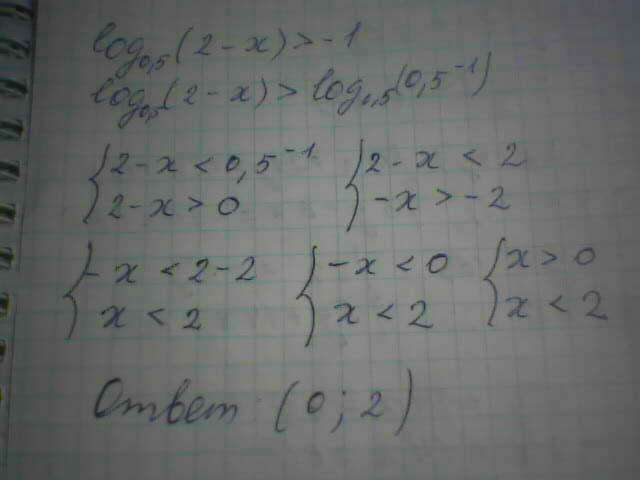 log₀,₅(2-x)>-1
log₀,₅(2-x)>log₀,₅(0,5⁻¹)
{2-x<0,5⁻¹ {2-x<2
{2-x>0 {-x>-2
{-x<2-2 {-x<0 {x>0
{x<2 {x<2 {x<2
Ответ (0;2)